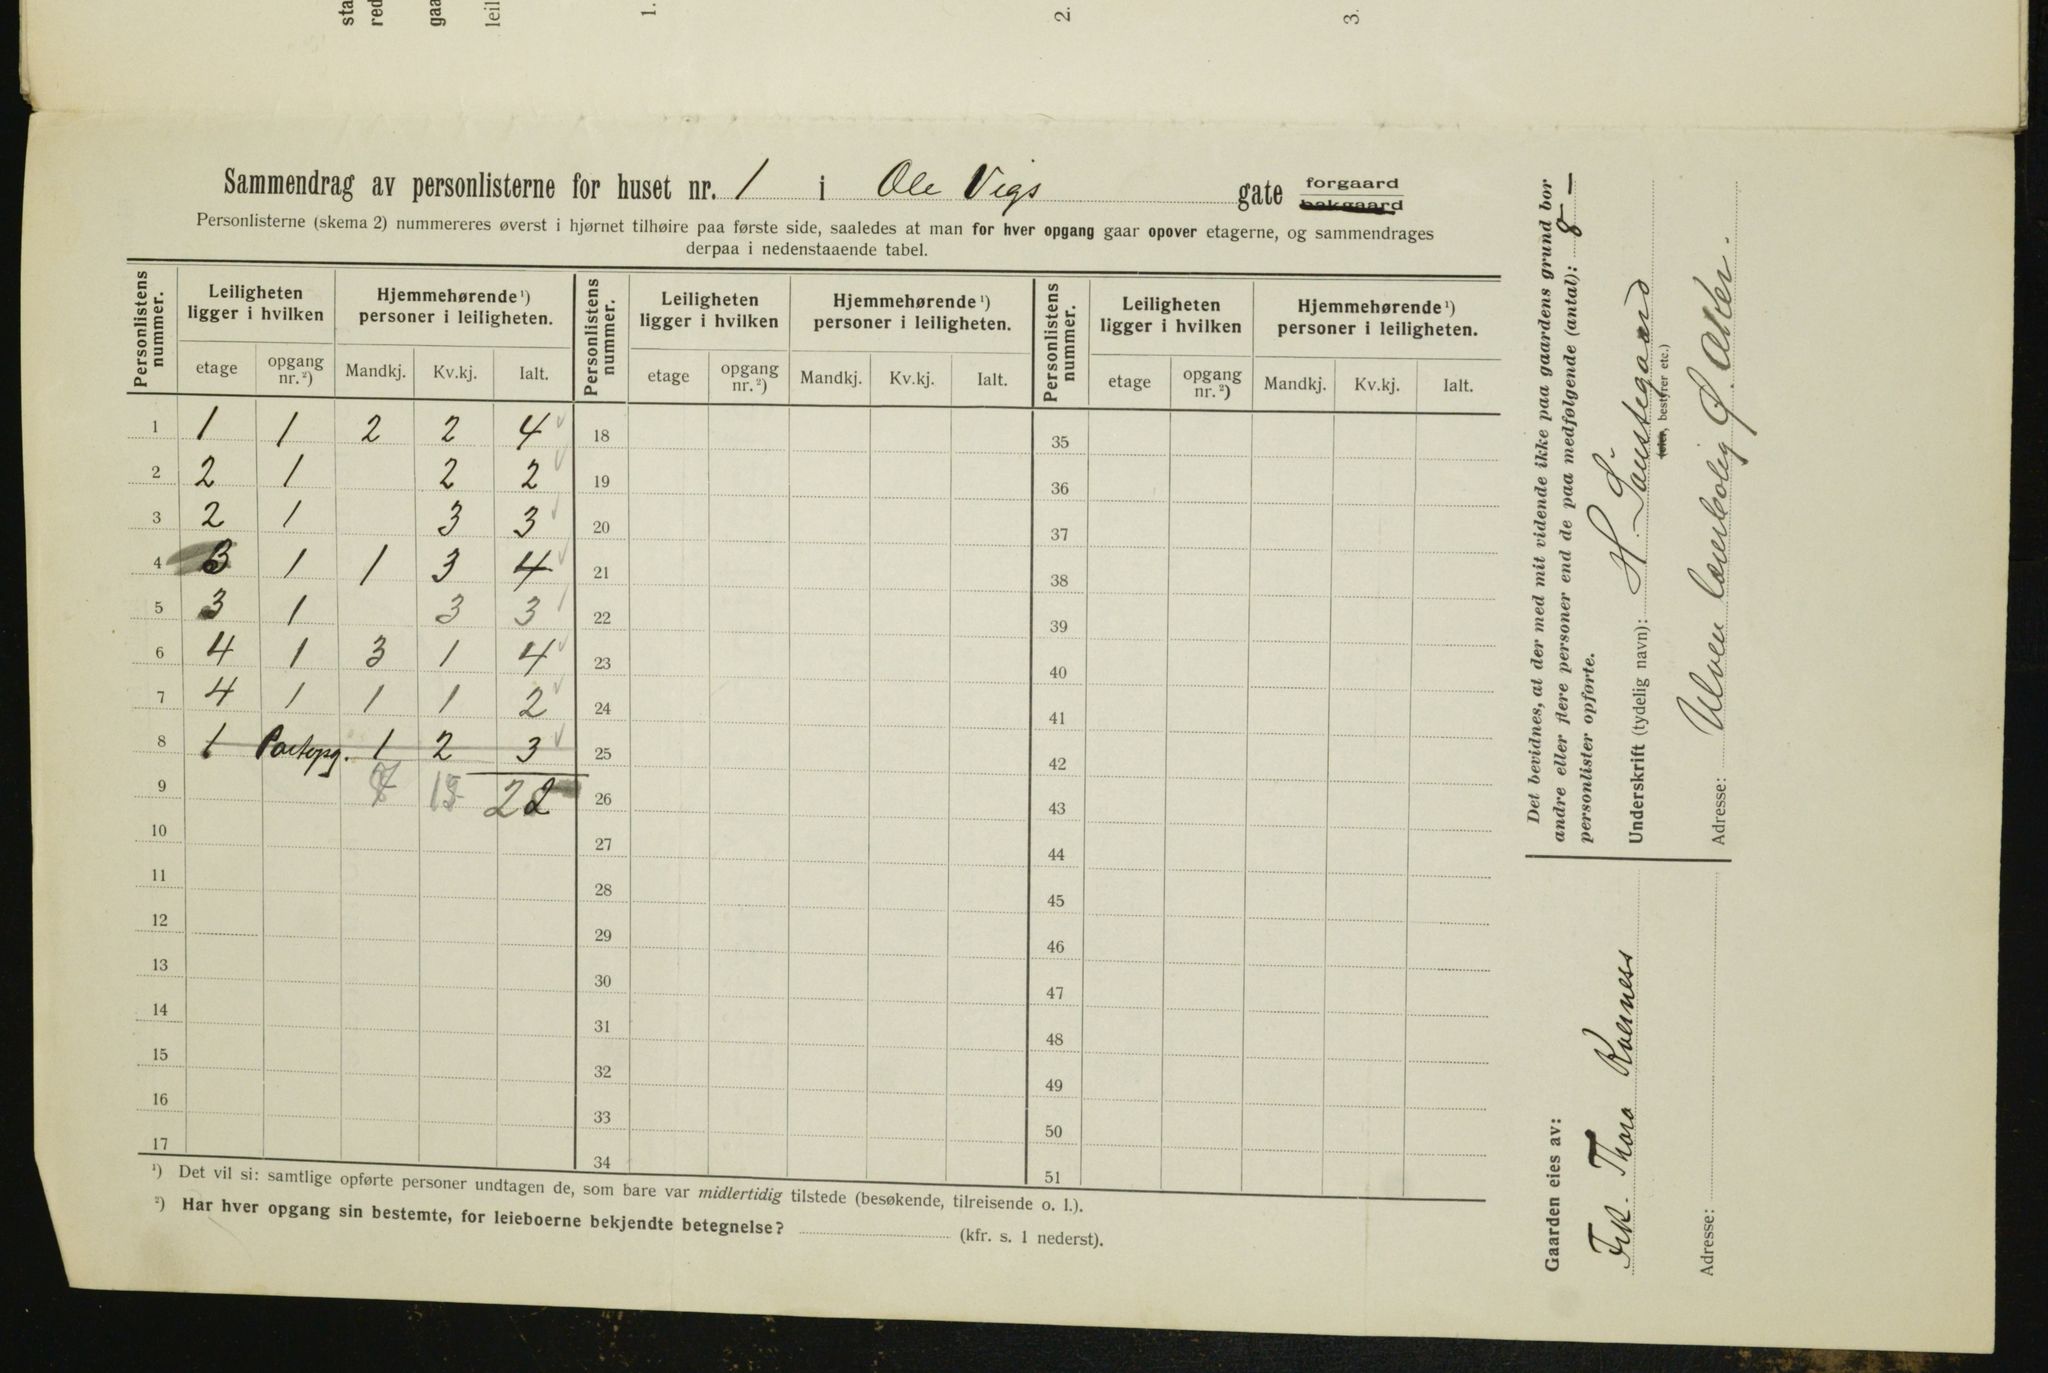 sta
red
gaa
leil
1.
2.
3.
Sammendrag av personlisterne for huset nr. 1 i Ole Vigs gate forgaard bakgaard
Personlisterne (skema 2) nummereres øverst i hjørnet tilhøire paa første side, saaledes at man for hver opgang gaar opover etagerne, og sammendrages
derpaa i nedenstaaende tabel.
Personlistens nummer. Leiligheten ligger i hvilken Hjemmehørende ¹) personer i leiligheten. Personlistens nummer. Leiligheten ligger i hvilken Hjemmehørende ¹) personer i leiligheten. Personlistens nummer. Leiligheten ligger i hvilken Hjemmehørende ¹) personer i leiligheten.
etage opgang nr. ²) Mandkj. Kv.kj. Ialt. etage opgang nr. ²) Mandkj. Kv.kj. Ialt. etage opgang nr. ²) Mandkj. Kv.kj. Ialt.
1 1 1 2 2 4 18 35
2 2 1 2 2 19 36
3 2 1 3 3 20 37
4 3 1 1 3 4 21 38
5 3 1 3 3 22 39
6 4 1 3 1 4 23 40
7 4 1 1 1 2 24 41
8 1 Portopg. 1 2 3 25 42
9 15 22 26 43
10 27 44
11 28 45
12 29 46
13 30 47
14 31 48
15 32 49
16 33 50
17 34 51
¹) Det vil si: samtlige opførte personer undtagen de, som bare var midlertidig tilstede (besøkende, tilreisende o. l.).
²) Har hver opgang sin bestemte, for leieboerne bekjendte betegnelse? (kfr. s. 1 nederst).
Det bevidnes, at der med mit vidende ikke paa gaardens grund bor
andre eller flere personer end de paa medfølgende (antal): 8 —
personlister opførte.
Underskrift (tydelig navn): H. Saustegaard
bestyrer etc.)
Adresse: Ulven lærerbolig Ø. Aker.
Gaarden eies av:
Frk. Thora Kverness
Adresse: